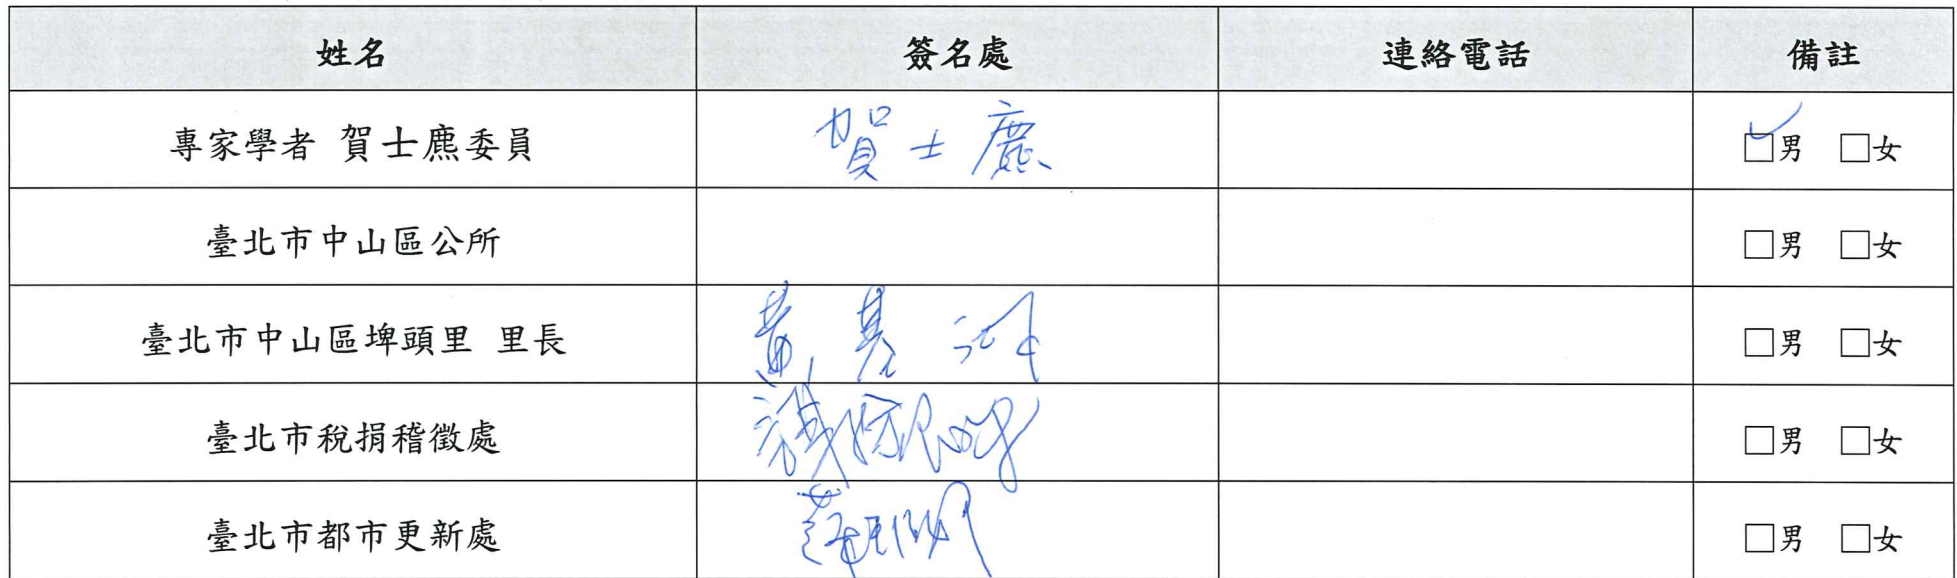 姓名 簽名處 連絡電話 備註
專家學者 賀士麃委員 賀士麃 □男 □女
臺北市中山區公所 □男 □女
臺北市中山區埤頭里 里長 黃 □男 □女
臺北市稅捐稽徵處 □男 □女
臺北市都市更新處 □男 □女